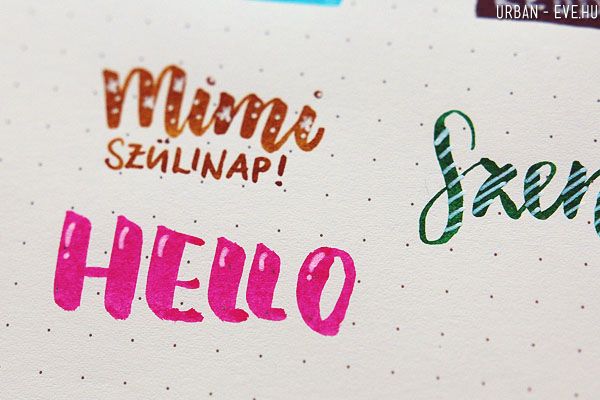 URBAN - EVE.HU
Mimi
SZÜLINAP!
Szen
HELLO